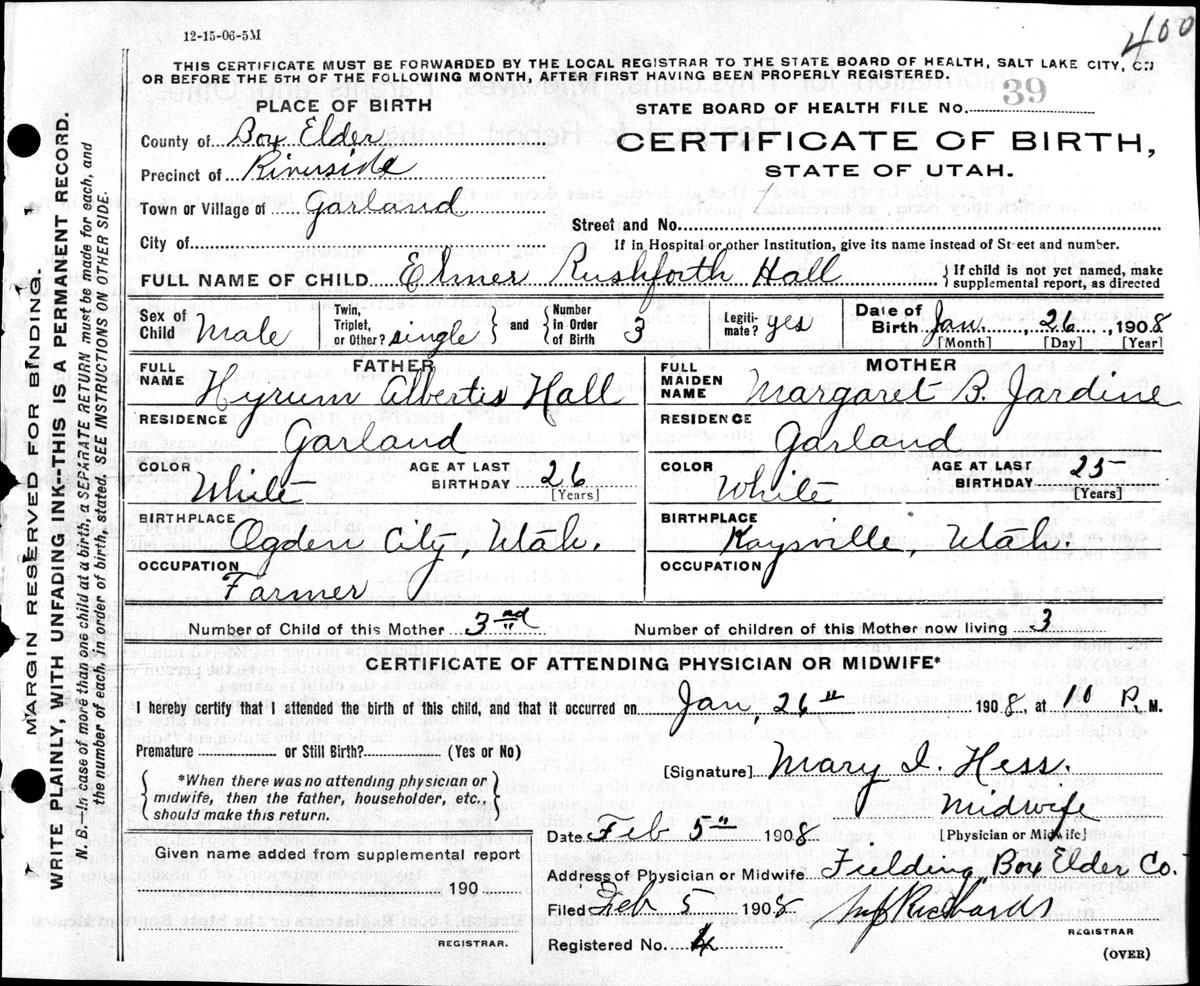 400
12-15-06-5M
THIS CERTIFICATE MUST BE FORWARDED BY THE LOCAL REGISTRAR TO THE STATE BOARD OF HEALTH, SALT LAKE CITY, ON
OR BEFORE THE 5TH OF THE FOLLOWING MONTH, AFTER FIRST HAVING BEEN PROPERLY REGISTERED.
PLACE OF BIRTH
County of Box Elder
Precinct of Riverside
Town or Village of Garland
City of
STATE BOARD OF HEALTH FILE No. 39
CERTIFICATE OF BIRTH,
STATE OF UTAH.
Street and No.
If in Hospital or other Institution, give its name instead of Street and number.
FULL NAME OF CHILD Elmer Rushforth Hall { If child is not yet named, make supplemental report, as directed
Sex of Child Male
Twin, Triplet, or Other? single } and { Number in Order of Birth 3
Legitimate? yes
Date of Birth Jan. , 26 , 1908
[Month] [Day] [Year]
FATHER
FULL NAME Hyrum Albertis Hall
RESIDENCE Garland
COLOR White
AGE AT LAST BIRTHDAY 26 [Years]
BIRTHPLACE Ogden City, Utah.
OCCUPATION Farmer
MOTHER
FULL MAIDEN NAME Margaret B. Jardine
RESIDENCE Garland
COLOR White
AGE AT LAST BIRTHDAY 25 [Years]
BIRTHPLACE Kaysville, Utah.
OCCUPATION
Number of Child of this Mother 3rd
Number of children of this Mother now living 3
CERTIFICATE OF ATTENDING PHYSICIAN OR MIDWIFE*
I hereby certify that I attended the birth of this child, and that it occurred on Jan, 26th 1908, at 10 P. M.
Premature or Still Birth? (Yes or No)
{ *When there was no attending physician or midwife, then the father, householder, etc., should make this return. }
[Signature] Mary I. Hess.
Midwife
[Physician or Midwife]
Date Feb 5th 1908
Given name added from supplemental report
190
REGISTRAR.
Address of Physician or Midwife Fielding Box Elder Co.
Filed Feb 5 1908 Richards
REGISTRAR
Registered No. 4
(OVER)
MARGIN RESERVED FOR BINDING.
WRITE PLAINLY, WITH UNFADING INK—THIS IS A PERMANENT RECORD.
N. B.—In case of more than one child at a birth, a SEPARATE RETURN must be made for each, and
the number of each, in order of birth, stated. SEE INSTRUCTIONS ON OTHER SIDE.